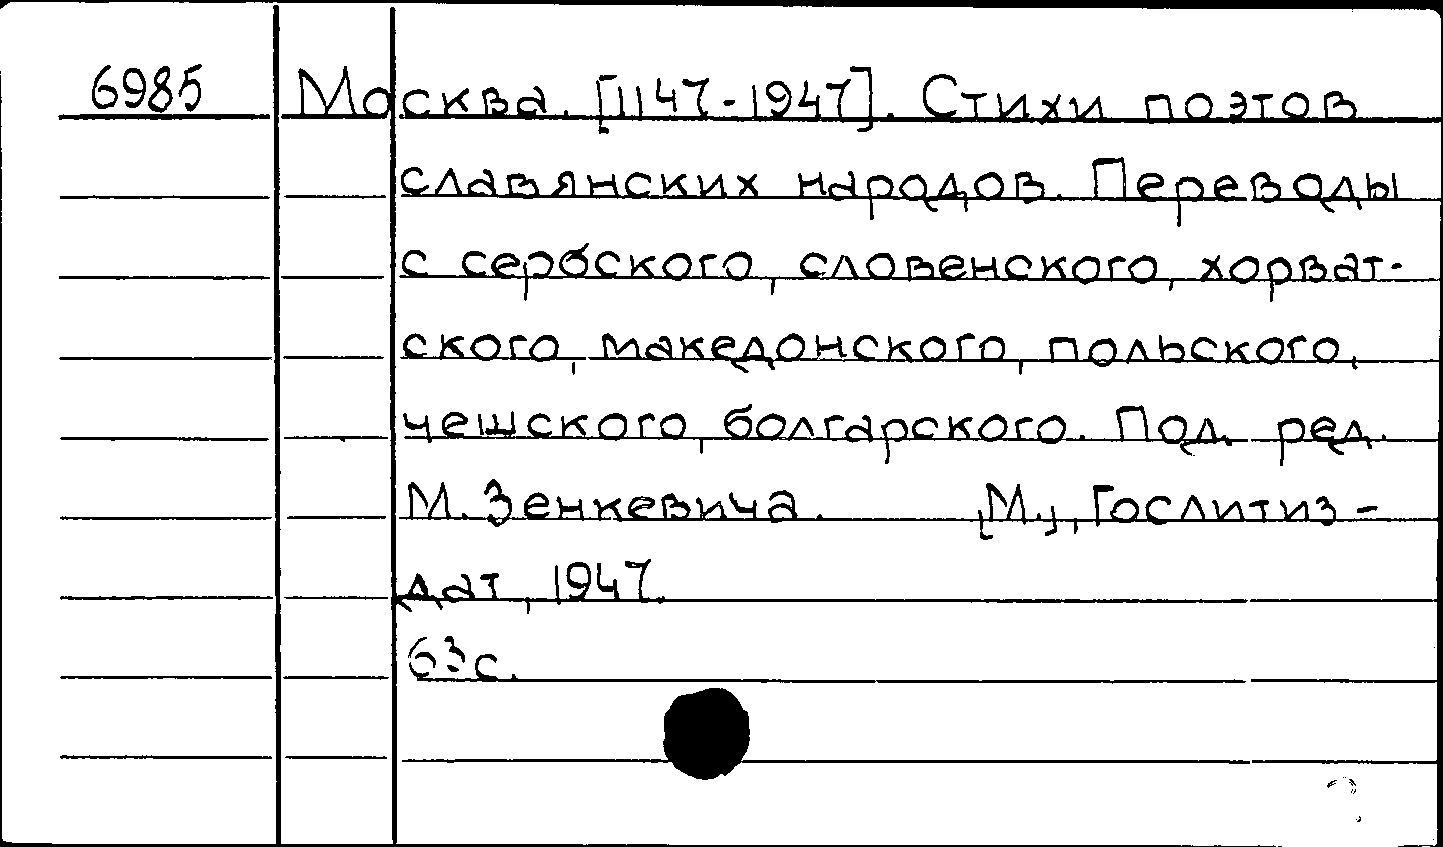 6985 Москва. [1147-1947]. Стихи поэтов
славянских народов. Переводы
с сербского, словенского, хорват-
ского, македонского, польского,
чешского, болгарского. Под. ред.
М. Зенкевича. [М.], Гослитиз-
дат, 1947.
63 с.